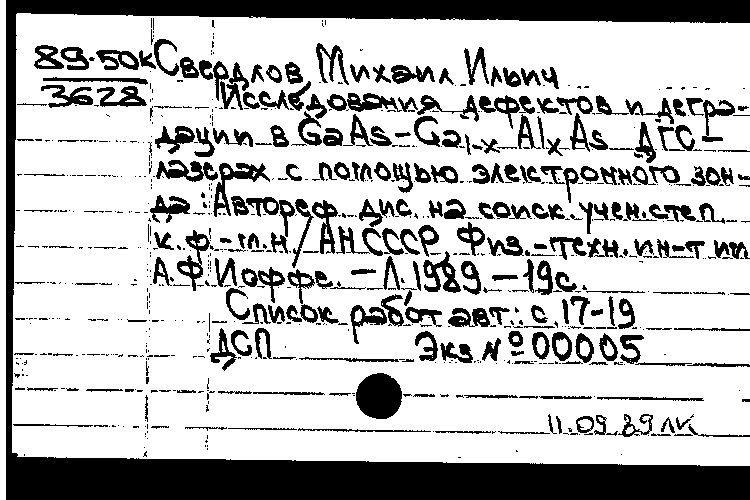 89-50к Свердлов Михаил Ильич
3628 Исследования дефектов и дегра-
дации в GaAs-Ga1-xAlxAs ДГС-
лазерах с помощью электронного зон-
да: Автореф. дис. на соиск. учен. степ.
к. ф.-м. н. / АН СССР, Физ.-техн. ин-т им.
А.Ф. Иоффе. - Л. 1989. - 19с.
Список работ авт.: с. 17-19
ДСП Экз № 00005
11.09.89 ЛК